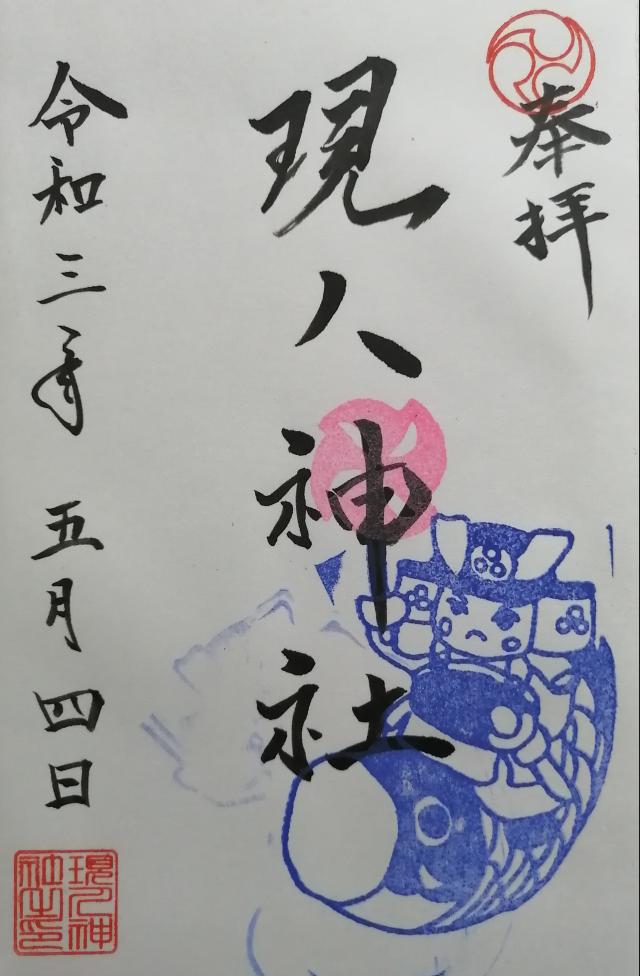 奉拝
現人神社
令和三年 五月 四日
現人神
社之印